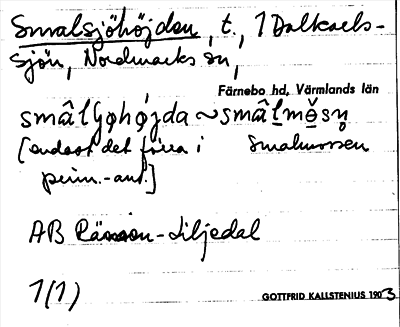 Smalsjöhöjden, t., 1 Dalkarls-
sjön, Nordmarks sn,
Färnebo hd, Värmlands län
smâlʃøhøjda ~ smâl̠mø̠̌sn̥
[endast det förra i Smalmossen
prim.-ant.]
AB Liljedal
1(1)
GOTTFRID KALLSTENIUS 1903